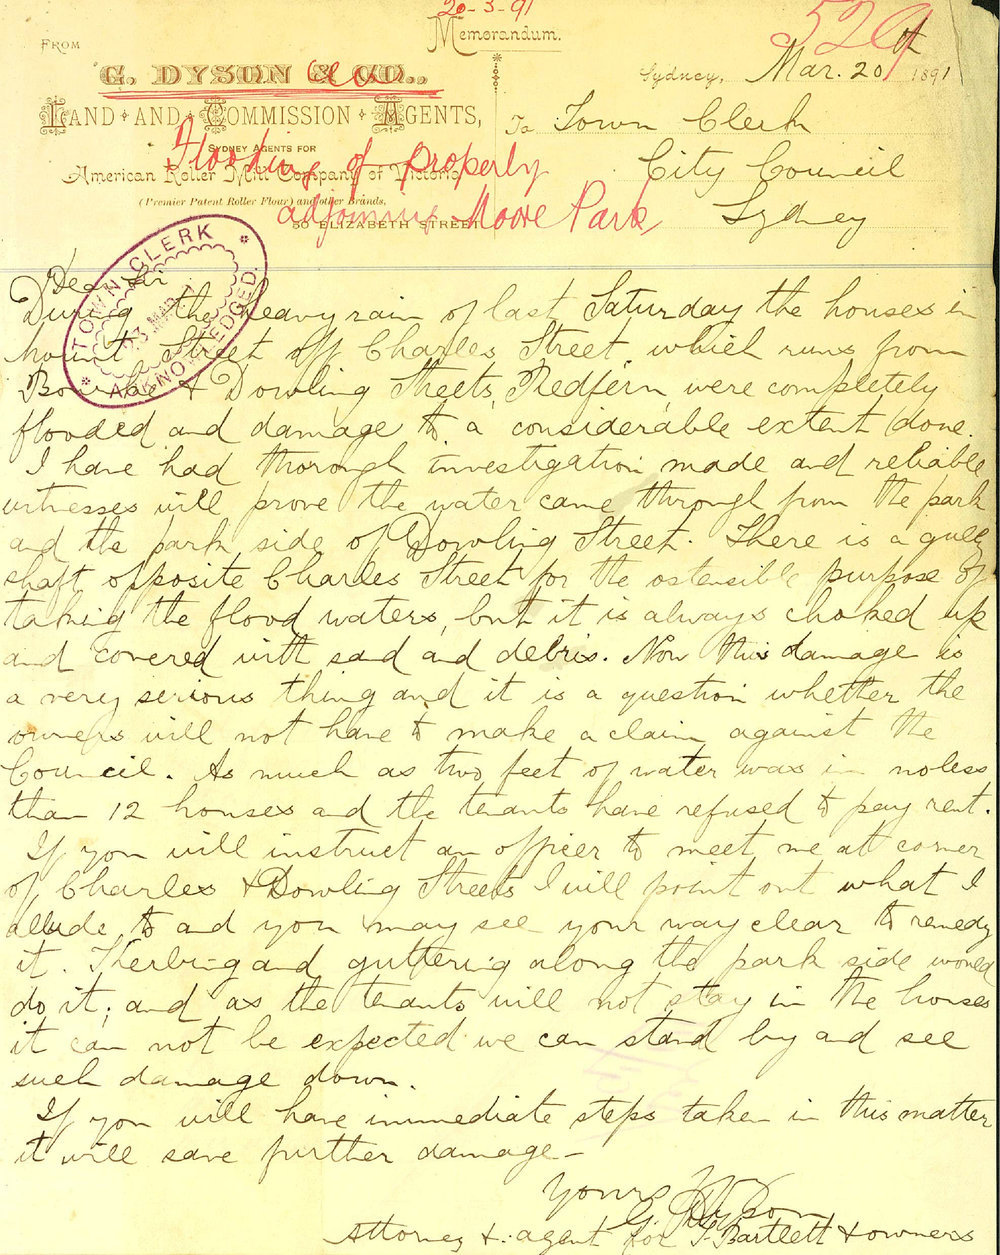 20-3-91
Memorandum.
5209
FROM
G. DYSON & CO.,
Sydney, Mar. 20th 1891
LAND AND COMMISSION AGENTS,
SYDNEY AGENTS FOR
American Roller Mill Company of Victoria
(Premier Patent Roller Flour) and other Brands,
50 ELIZABETH STREET
To Town Clerk
City Council
Sydney
Flooding of property
adjoining Moore Park
TOWN CLERK
23 MAR
ACKNOWLEDGED.
Dear Sir
During the heavy rain of last Saturday the houses in
Mount Street off Charles Street which runs from
Bourke & Dowling Streets, Redfern, were completely
flooded and damage to a considerable extent done.
I have had thorough investigation made and reliable
witnesses will prove the water came through from the park
and the park side of Dowling Street. There is a gully
shaft opposite Charles Street for the ostensible purpose of
taking the flood waters, but it is always choked up
and covered with sand and debris. Now this damage is
a very serious thing and it is a question whether the
owners will not have to make a claim against the
Council. As much as two feet of water was in no less
than 12 houses and the tenants have refused to pay rent.
If you will instruct an officer to meet me at corner
of Charles & Dowling Streets I will point out what I
allude to and you may see your way clear to remedy
it. Kerbing and guttering along the park side would
do it; and as the tenants will not stay in the houses
it can not be expected we can stand by and see
such damage down.
If you will have immediate steps taken in this matter
it will save further damage—
Yours
G. Dyson
Attorney & agent for J. Bartlett & owners